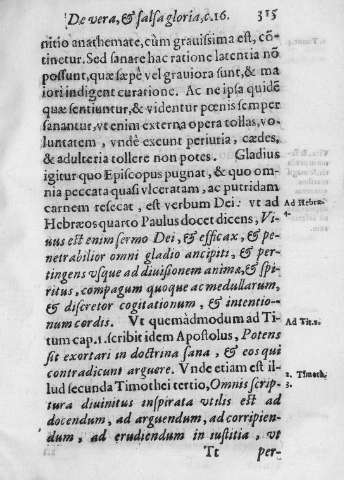 De vera, & falsa gloria, c.16. 315
nitio anathemate, cùm grauissima est, cõ-
tinetur. Sed sanare hac ratione latentia nõ
possunt, quæ sæpè vel grauiora sunt, & ma
iori indigent curatione. Ac ne ipsa quidẽ
quæ sentiuntur, & videntur pœnis semper
sanantur, vt enim externa opera tollas, vo-
luntatem, vndè exeunt periuria, cædes,
& adulteria tollere non potes. Gladius
igitur quo Episcopus pugnat, & quo om-
nia peccata quasi vlceratam, ac putridam
carnem resecat, est verbum Dei: vt ad
Ad Hebræ.
4.
Hebræos quarto Paulus docet dicens, Vi-
uus est enim sermo Dei, & efficax, & pe-
netrabilior omni gladio ancipiti, & per-
tingens vsque ad diuisionem animæ, & spi-
ritus, compagum quoque ac medullarum,
& discretor cogitationum, & intentio-
num cordis. Vt quemàdmodum ad Ti-
Ad Tit.1.
tum cap.1. scribit idem Apostolus, Potens
sit exortari in doctrina sana, & eos qui
contradicunt arguere. Vnde etiam est il-
lud secunda Timothei tertio, Omnis scrip-
2. Timoth.
3.
tura diuinitus inspirata vtilis est ad
docendum, ad arguendum, ad corripien-
dum, ad erudiendum in iustitia, vt
Tt per-